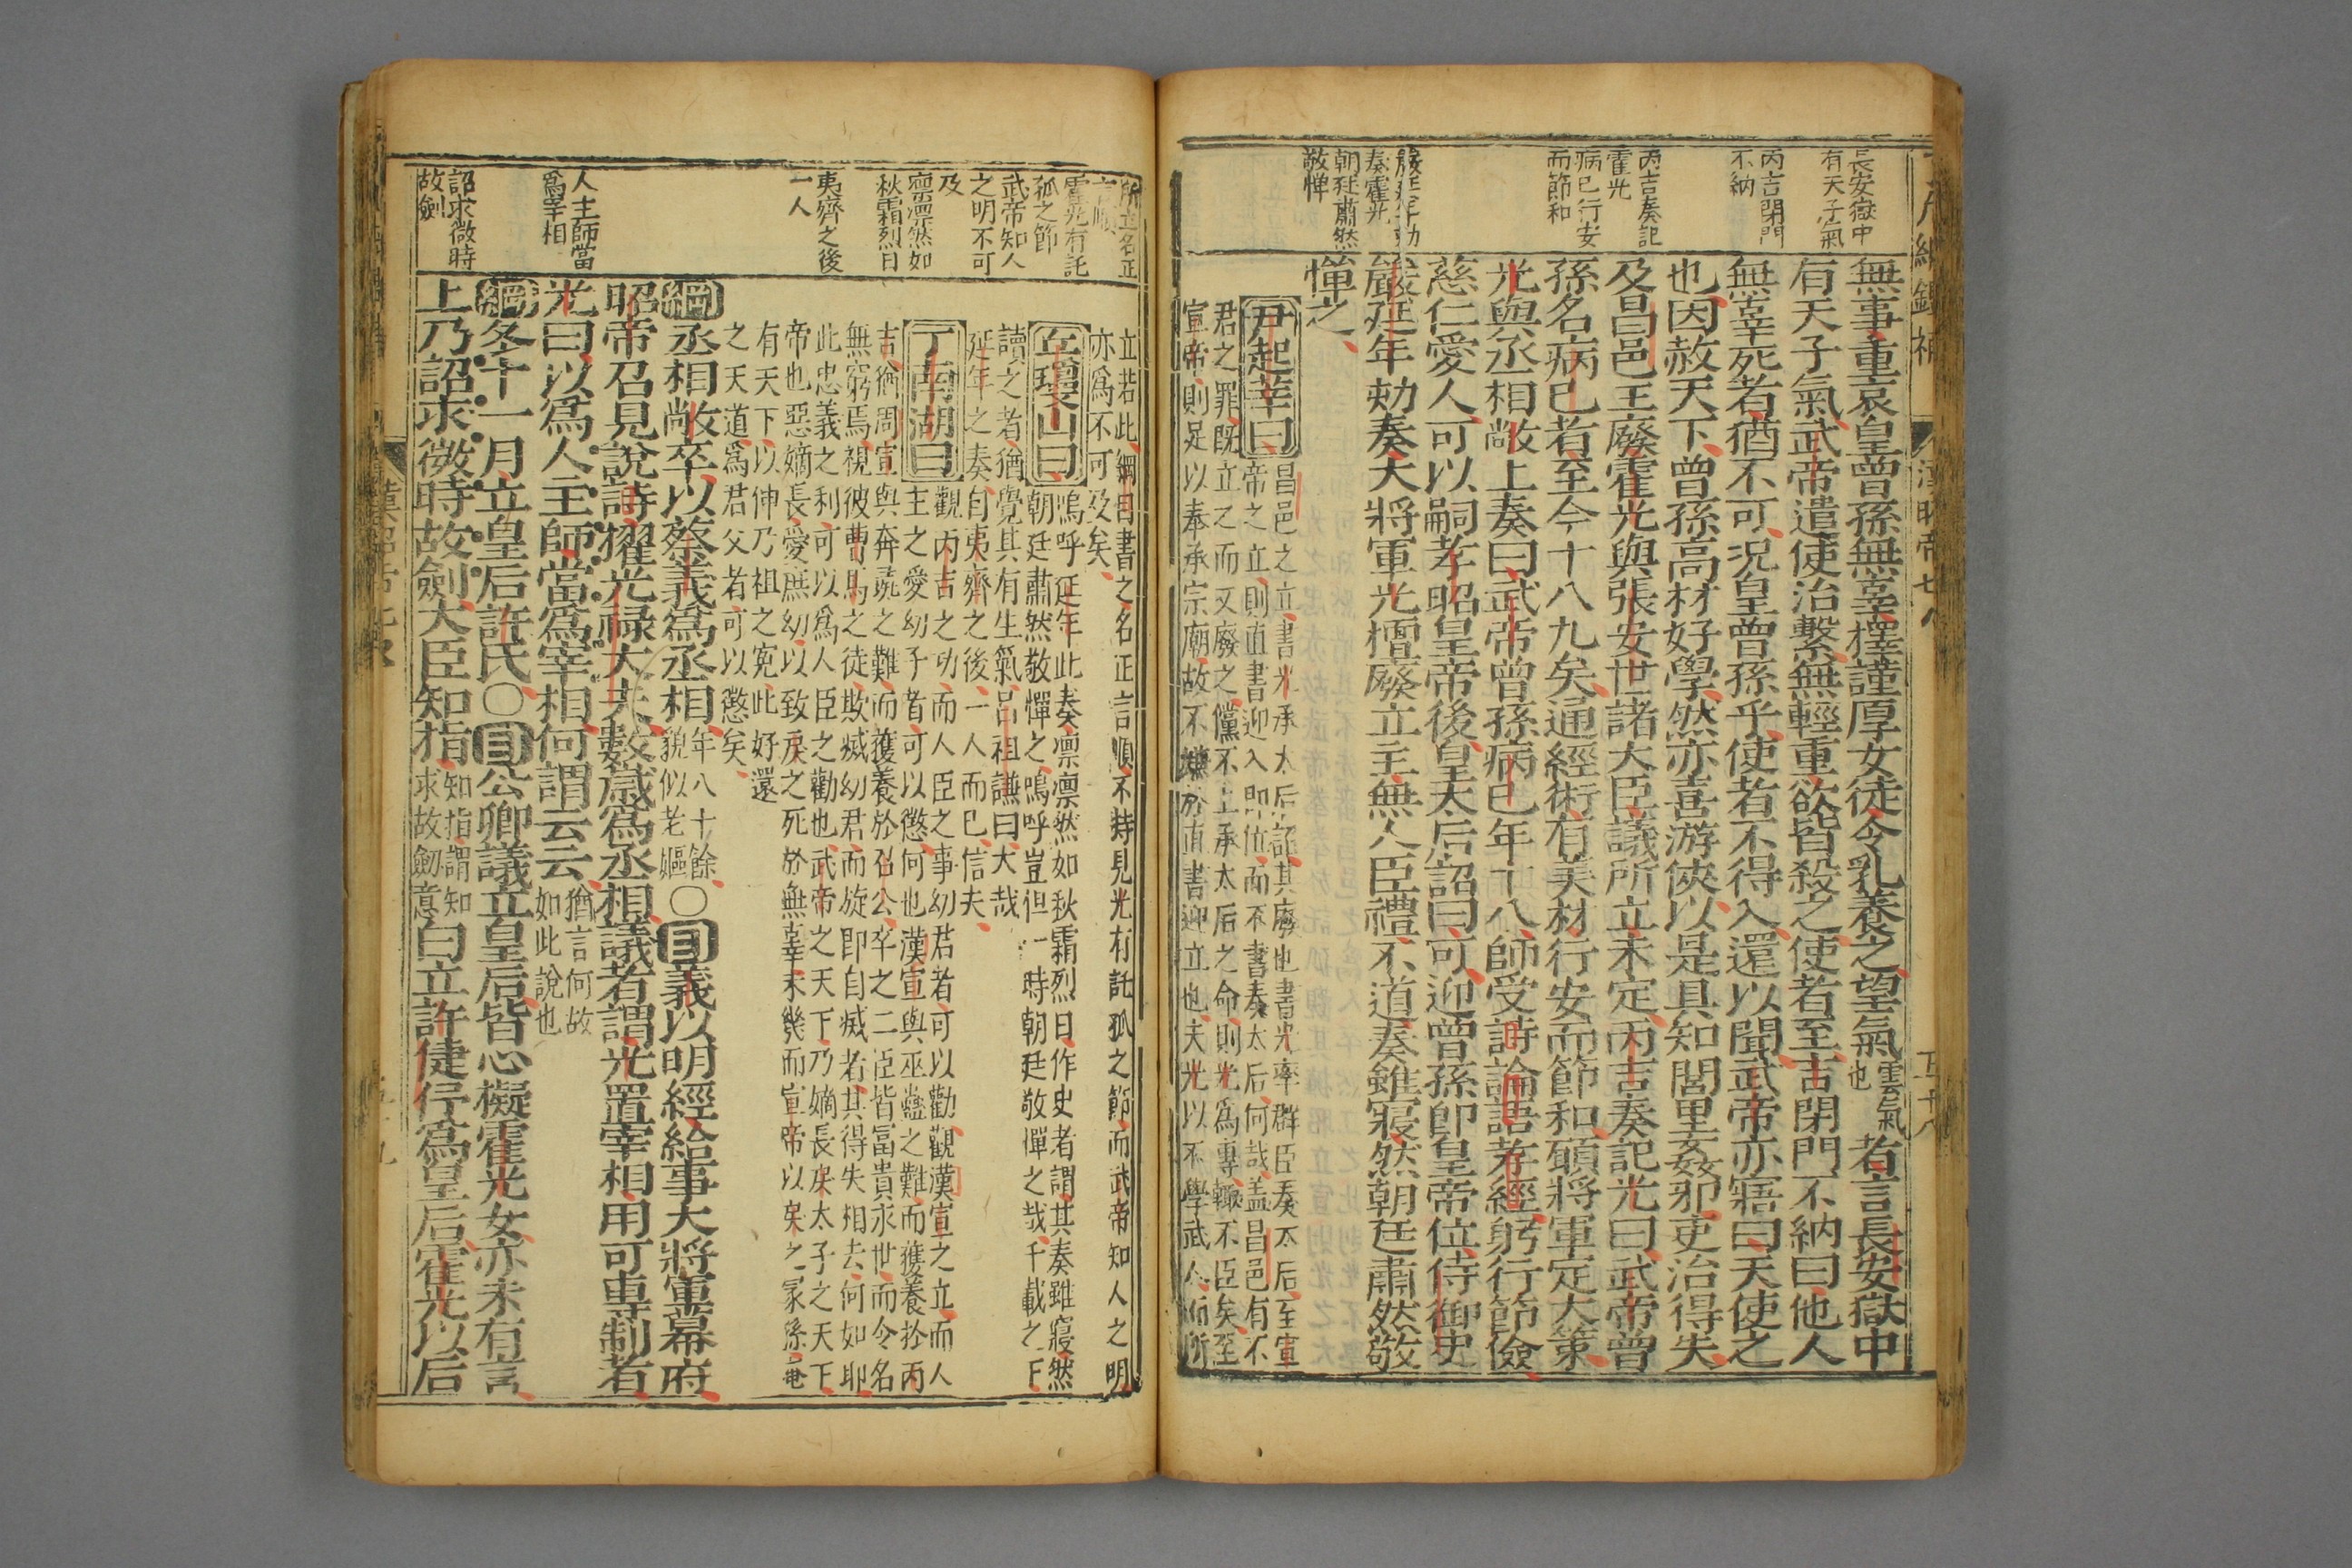 長安獄中
有天子氣
丙吉閉門
不納
丙吉奏記
霍光
病已行安
而節和
嚴延年劾
奏霍光
朝廷肅然
敬憚
無事重哀皇曾孫無辜擇謹厚女徒令乳養之望氣雲氣也者言長安獄中
有天子氣武帝遣使治繫無輕重欲皆殺之使者至吉閉門不納曰他人
無辜死者猶不可況皇曾孫乎使者不得入還以聞武帝亦寤曰天使之
也因赦天下曾孫高材好學然亦喜游俠以是具知閭里姦邪吏治得失
及昌邑王廢霍光與張安世諸大臣議所立未定丙吉奏記光曰武帝曾
孫名病已者至今十八九矣通經術有美材行安而節和願將軍定大策
光與丞相敞上奏曰武帝曾孫病已年十八師受詩論語孝經躬行節儉
慈仁愛人可以嗣孝昭皇帝後皇太后詔曰可迎曾孫即皇帝位侍御史
嚴延年劾奏大將軍光擅廢立主無人臣禮不道奏雖寢然朝廷肅然敬
憚之
尹起莘曰昌邑之立書光承太后詔其廢也書光率群臣奏太后至宣
帝之立則直書迎入即位而不書奏太后何哉蓋昌邑有不
君之罪既立之而又廢之儻不上承太后之命則光為專輒不臣矣至
宣帝則足以奉承宗廟故不嫌於直書迎立也夫光以不學武人而所
所立名正
言順
霍光有託
孤之節
武帝知人
之明不可
及
凛凛然如
秋霜烈日
夷齊之後
一人
人主師當
爲宰相
詔求微時
故劍
立若此綱目書之名正言順不特見光有託孤之節而武帝知人之明
亦爲不可及矣
丘瓊山曰嗚呼延年此奏凛凛然如秋霜烈日作史者謂其奏雖寢然
朝廷肅然敬憚之嗚呼豈但一時朝廷敬憚之哉千載之下
讀之者猶覺其有生氣呂祖謙曰大哉
延年之奏自夷齊之後一人而已信夫
丁南湖曰觀丙吉之功而人臣之事幼君者可以勸觀漢宣之立而人
主之愛幼子者可以懲何也漢宣與巫蠱之難而獲養於丙
吉猶周宣與奔彘之難而獲養於召公卒之二臣皆冨貴永世而令名
無窮焉視彼曹馬之徒欺烕幼君而旋即自烕者其得失相去何如耶
此忠義之利可以爲人臣之勸也武帝之天下乃嫡長戾太子之天下
帝也惡嫡長愛庶幼以致戾之死於無辜未幾而宣帝以戾之冢孫奄
有天下以伸乃祖之寃此好還
之天道爲君父者可以懲矣
綱丞相敞卒以蔡義爲丞相年八十餘貌似老嫗〇目義以明經給事大將軍幕府
昭帝召見說詩擢光祿大夫數歲爲丞相議者謂光置宰相用可專制者
光曰以爲人主師當爲宰相何謂云云猶言何故如此說也
綱冬十一月立皇后許氏〇目公卿議立皇后皆心擬霍光女亦未有言
上乃詔求微時故劍大臣知指知指謂知求故劒意白立許倢伃爲皇后霍光以后